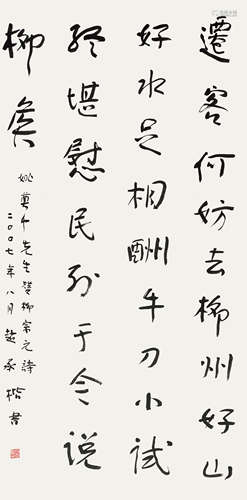 遷客何妨去柳州好山
好水足相酬牛刀小試
終堪慰民到于今说
柳侯
姚莫千先生登柳宗元詩
二〇〇七年八月 趙承楷書